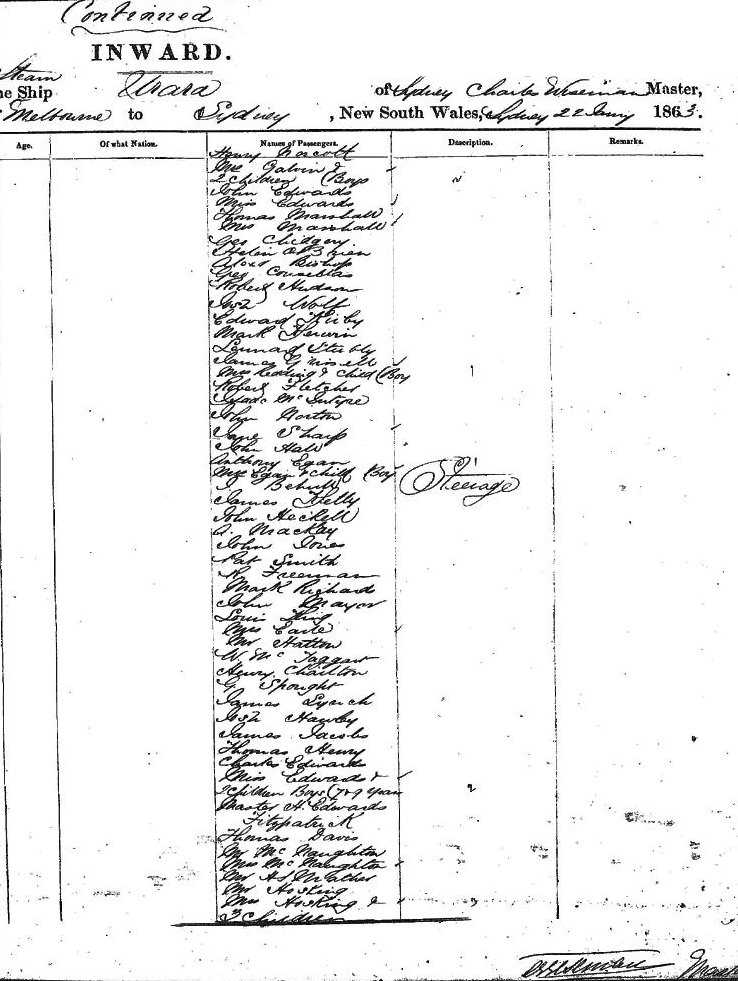 Continued
INWARD.
Steam
he Ship Urara of Sydney Charles Wiseman Master,
Melbourne to Sydney , New South Wales, Sydney 22 Jany 1863.
Age. Of what Nation. Names of Passengers. Description. Remarks.
Henry Norcott
Mrs Galvin &
2 Children (Boys
John Edwards
Miss Edwards
Thomas Marshall
Mrs Marshall
Geo Chidgery
O'Brien
Bishop
Geo
Robert Hudson
Wolf
Edward Kirby
Mark
Lennard
James
Mrs Redding & Child (Boy
Robert Fletcher
Isaac McIntyre
John Norton
Jane Sharp
John Hall
Anthony Egan
Mrs Egan & Child (Boy
Steerage
James Kelly
John Heckell
A. Mackay
John Jones
Pat Smith
R Freeman
Mark Richard
John Mayor
Louis King
Mrs Earle
Mr Hatton
W. McTaggart
Henry Charlton
G Spought
James Lynch
Hawby
James Jacobs
Thomas Henry
Charles Edwards
Miss Edwards &
2 Children Boys (7 & 9 years 2
Master H. Edwards
Fitzpatrick
Thomas Davis
Mr McNaughton
Miss McNaughton
Mr
Mr Hosking
Mrs Hosking &
3 Children